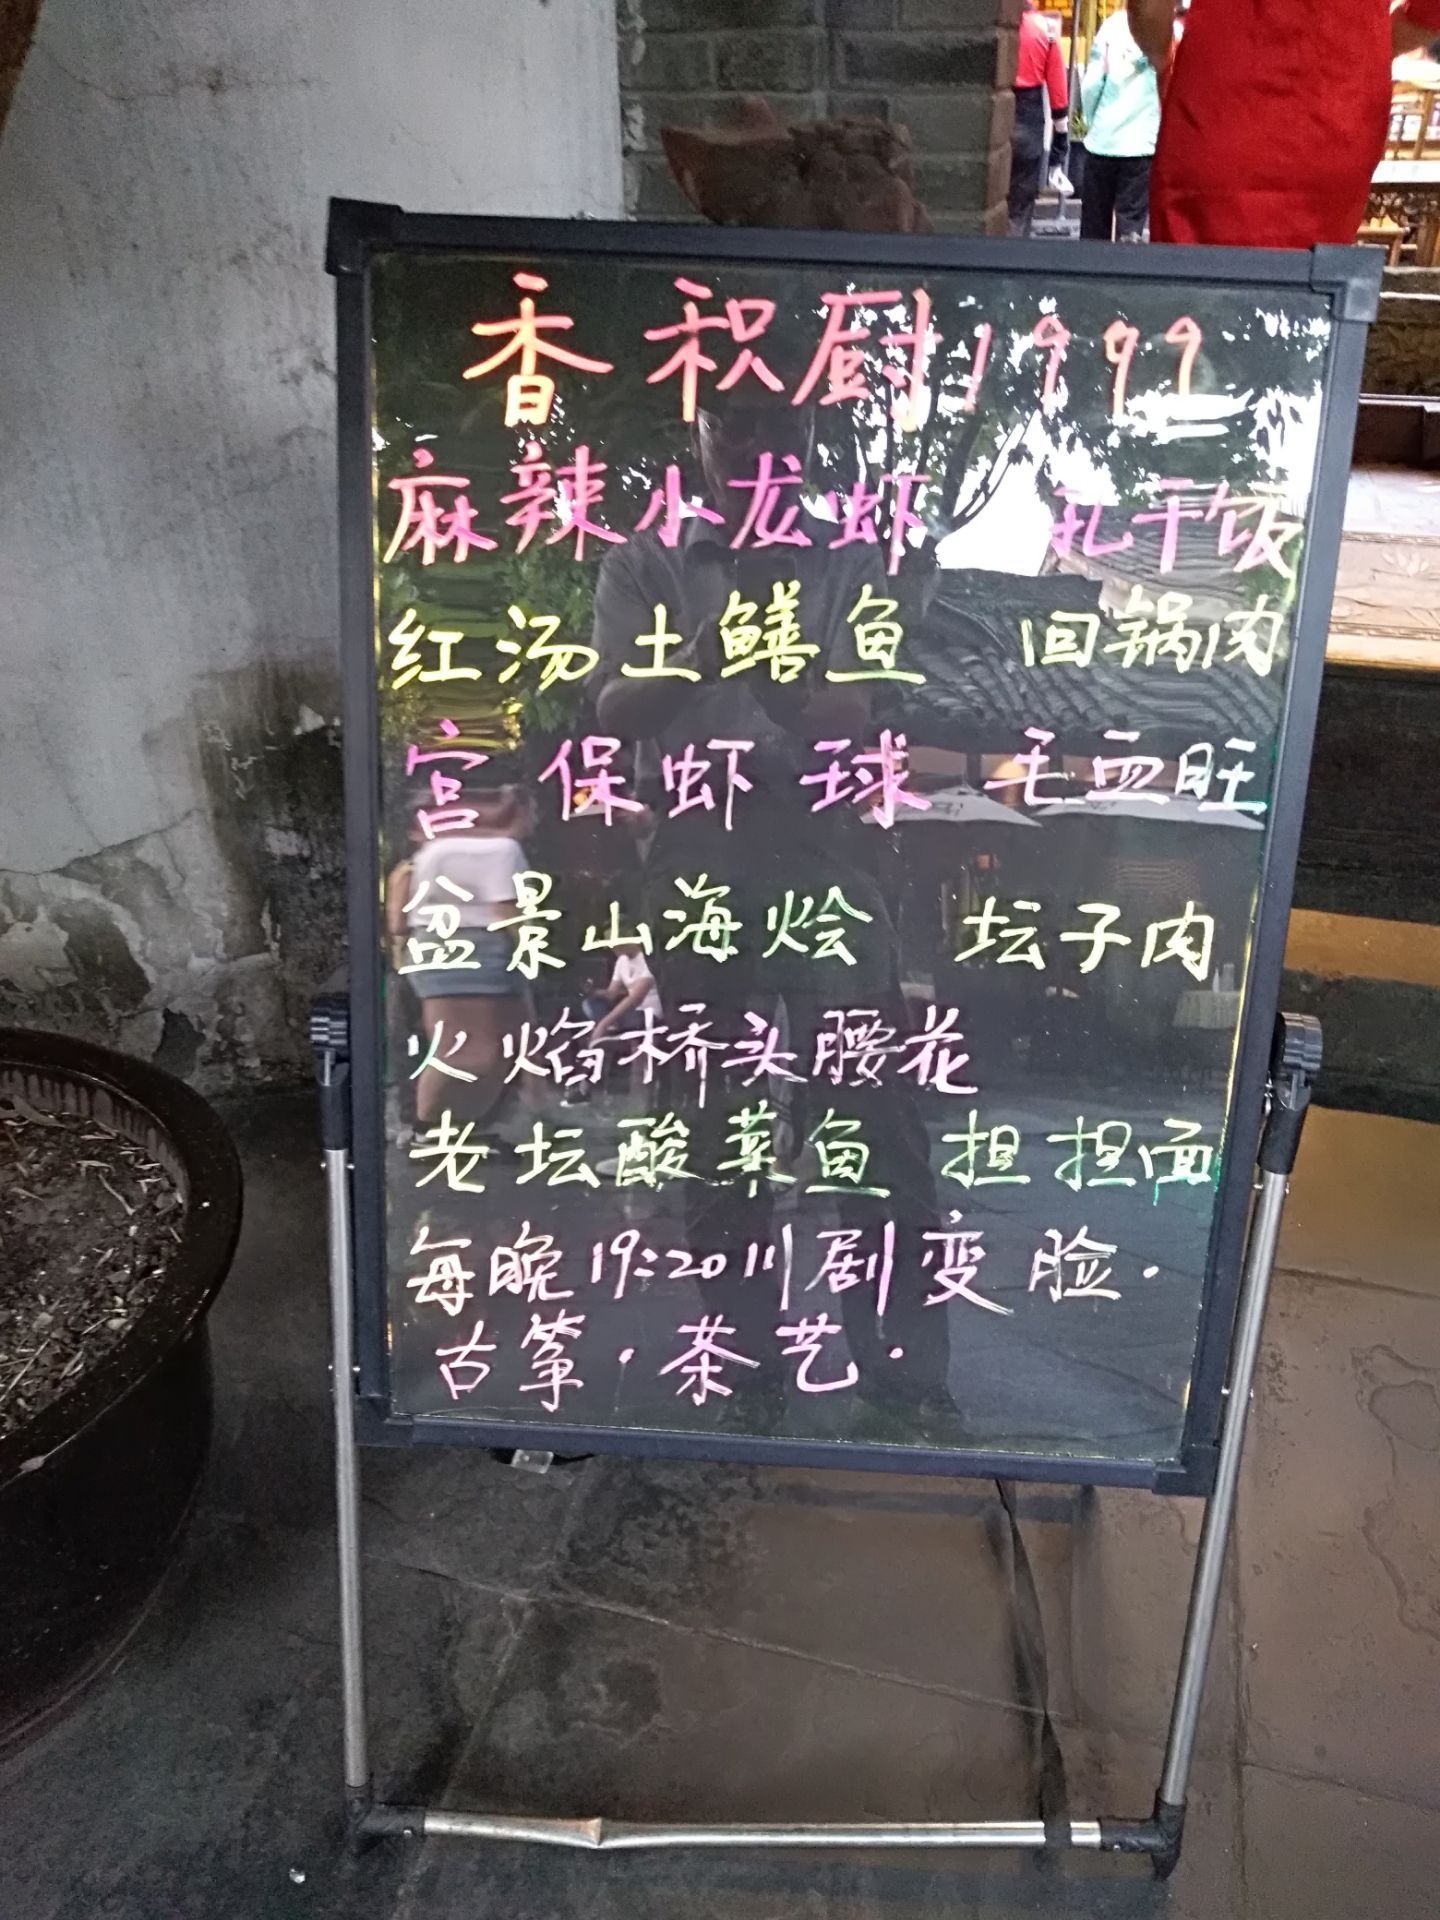 香积厨1999
麻辣小龙虾 孔干饭
红汤土鳝鱼 回锅肉
宫保虾球 毛血旺
盆景山海烩 坛子肉
火焰桥头腰花
老坛酸菜鱼 担担面
每晚19:20川剧变脸.
古筝.茶艺.